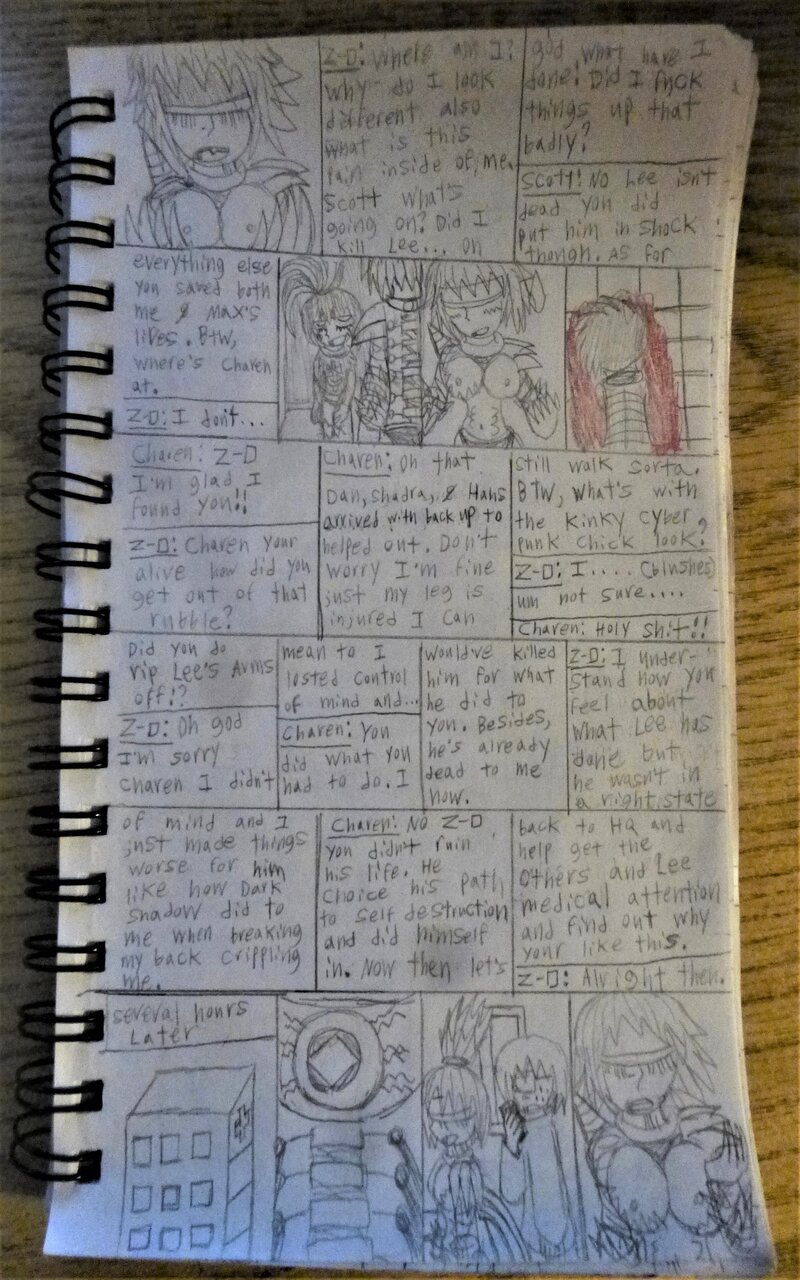 Z-D: Where am I?
why do I look
different also
what is this
pain inside of me.
Scott what's
going on? Did I
kill Lee... oh
god what have I
done! Did I fuck
things up that
badly?
Scott: No Lee isn't
dead you did
put him in shock
though. As for
everything else
you saved both
me & Max's
lives. Btw,
where's Charen
at.
Z-D: I don't...
Charen: Z-D
I'm glad I
found you!!
Z-D: Charen your
alive how did you
get out of that
rubble?
Charen: Oh that
Dan, Shadra, & Hans
arrived with back up to
helped out. Don't
worry I'm fine
just my leg is
injured I can
still walk sorta.
BTW, what's with
the kinky cyber
punk chick look?
Z-D: I.... (blushes)
um not sure....
Charen: Holy shit!!
Did you do
rip Lee's Arms
off!?
Z-D: Oh god
I'm sorry
Charen I didn't
mean to I
losted control
of mind and...
Charen: You
did what you
had to do. I
would've killed
him for what
he did to
you. Besides,
he's already
dead to me
now.
Z-D: I under-
stand how you
feel about
what Lee has
done but
he wasn't in
a right state
of mind and I
just made things
worse for him
like how Dark
Shadow did to
me when breaking
my back crippling
me.
Charen: No Z-D
you didn't ruin
his life. He
choice his path
to self destruction
and did himself
in. Now then let's
back to HQ and
help get the
others and Lee
medical attention
and find out why
your like this.
Z-D: Alright then.
several hours
Later